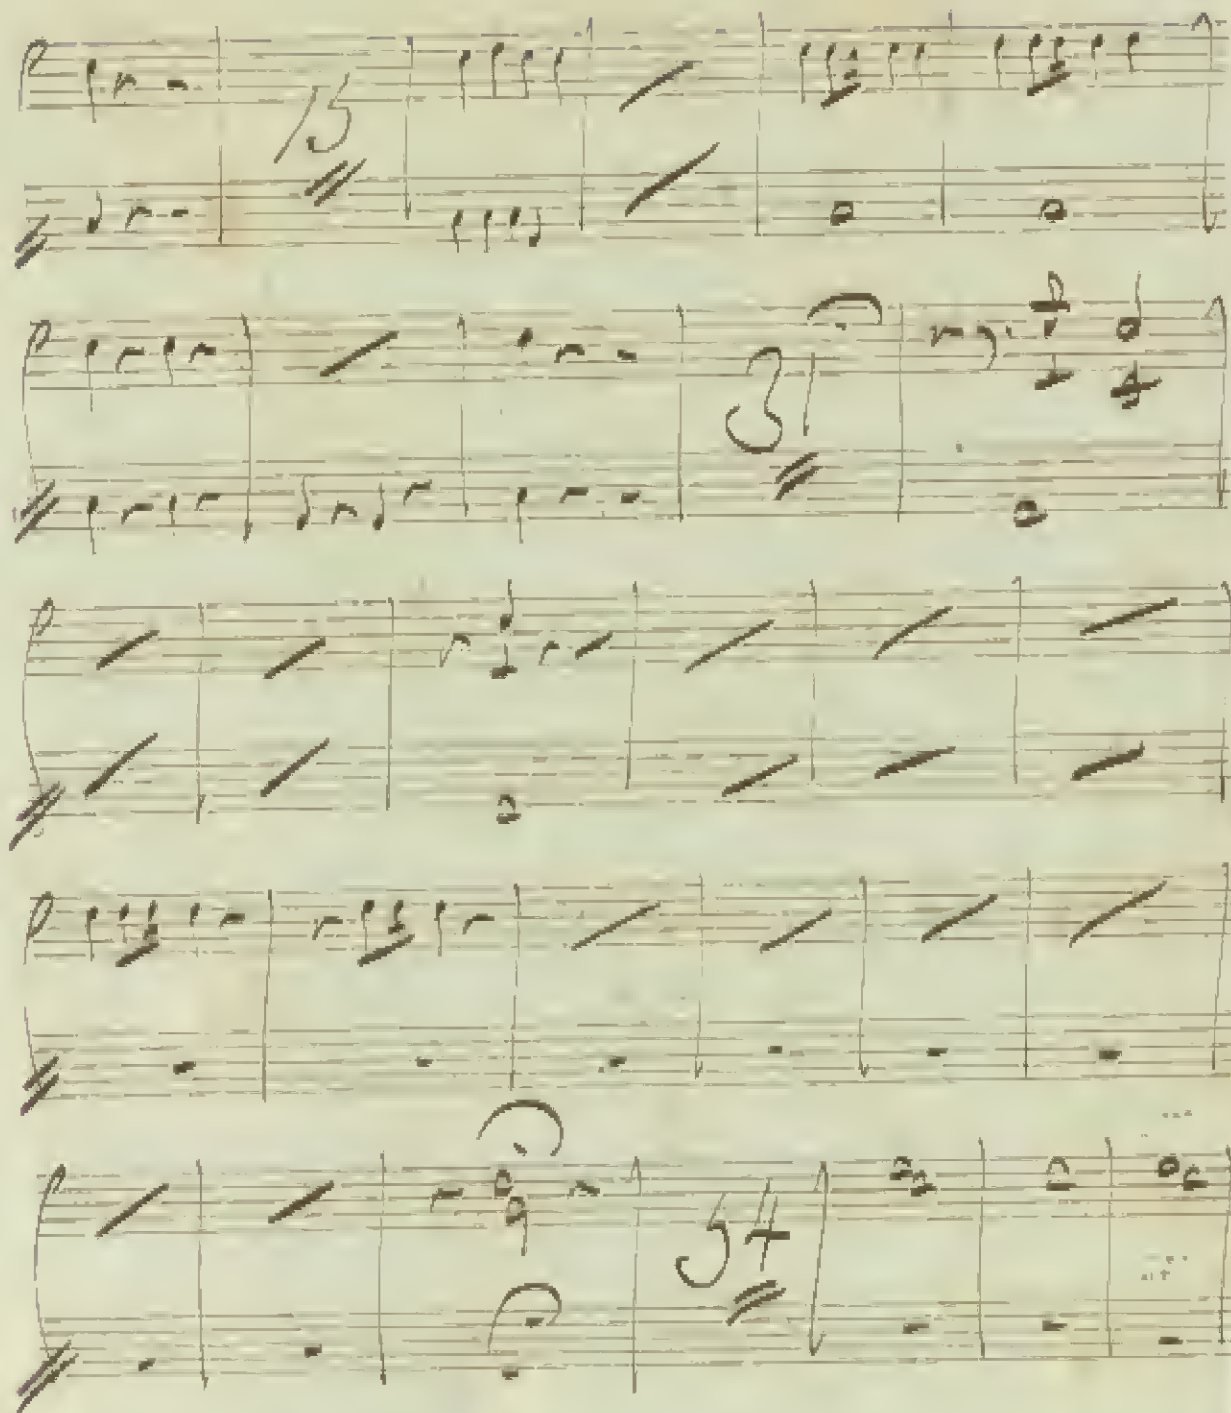 15
3
54